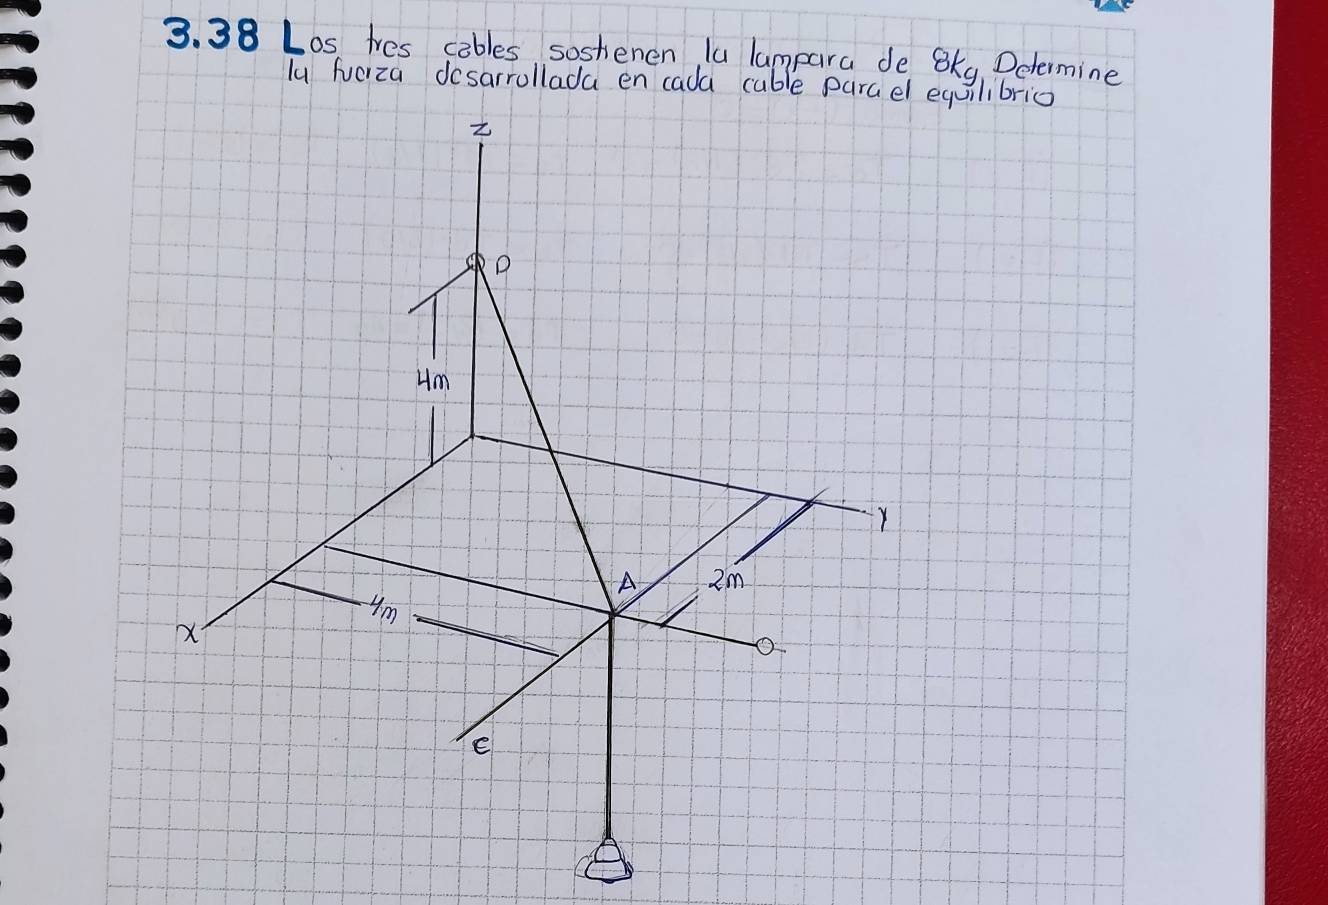 3.38 Los tres cables sostienen la lampara de 8kg, Determine
la fuerza desarrollada en cada cable para el equilibrio
z
D
4m
y
A
2m
4m
x
C